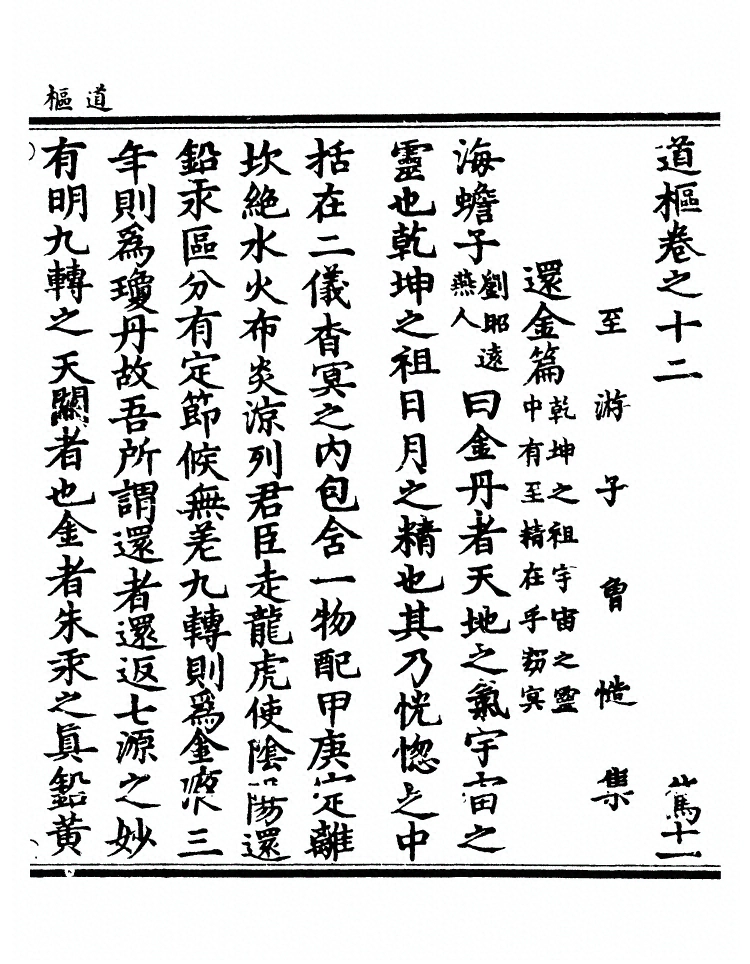 道樞
道樞卷之十二 篤十一
至游子曾慥集
還金篇
乾坤之祖宇宙之靈
中有至精在乎窈冥
海蟾子
劉昭遠
燕人
曰金丹者天地之氣宇宙之
靈也乾坤之祖日月之精也其乃恍惚之中
括在二儀杳冥之内包含一物配甲庚定離
坎絶水火布炎涼列君臣走龍虎使陰陽還
鉛汞區分有定節候無差九轉則爲金液三
年則爲瓊丹故吾所謂還者還返七源之妙
有明九轉之天關者也金者朱汞之眞鉛黄